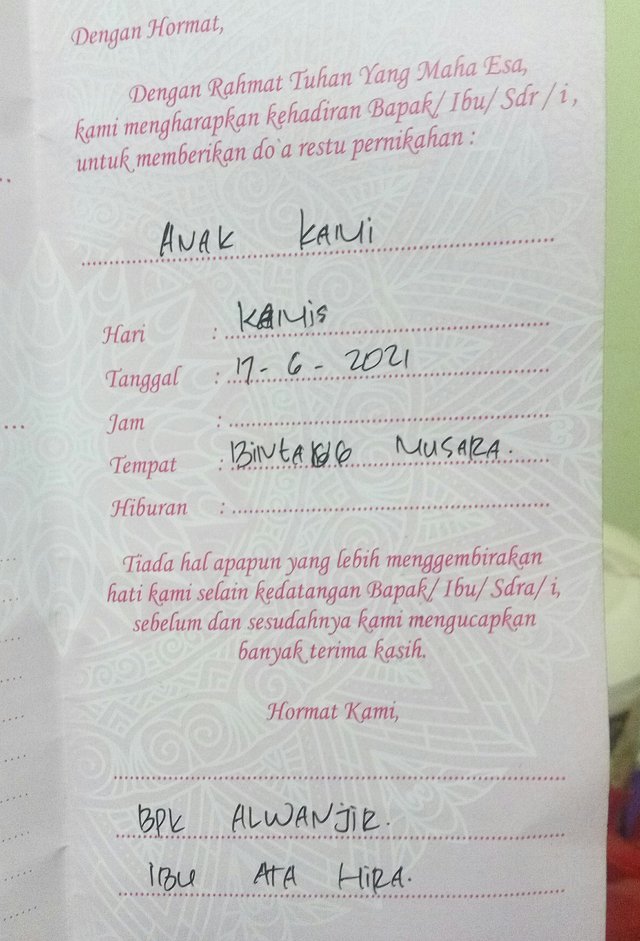 Dengan Hormat,
Dengan Rahmat Tuhan Yang Maha Esa,
kami mengharapkan kehadiran Bapak/ Ibu/ Sdr / i ,
untuk memberikan do`a restu pernikahan :
ANAK KAMI
Hari : KAMIS
Tanggal : 17 - 6 - 2021
Jam :
Tempat : MUSARA.
Hiburan :
Tiada hal apapun yang lebih menggembirakan
hati kami selain kedatangan Bapak/ Ibu/ Sdra/ i,
sebelum dan sesudahnya kami mengucapkan
banyak terima kasih.
Hormat Kami,
BPK ALWANJIR.
IBU ATA HIRA.